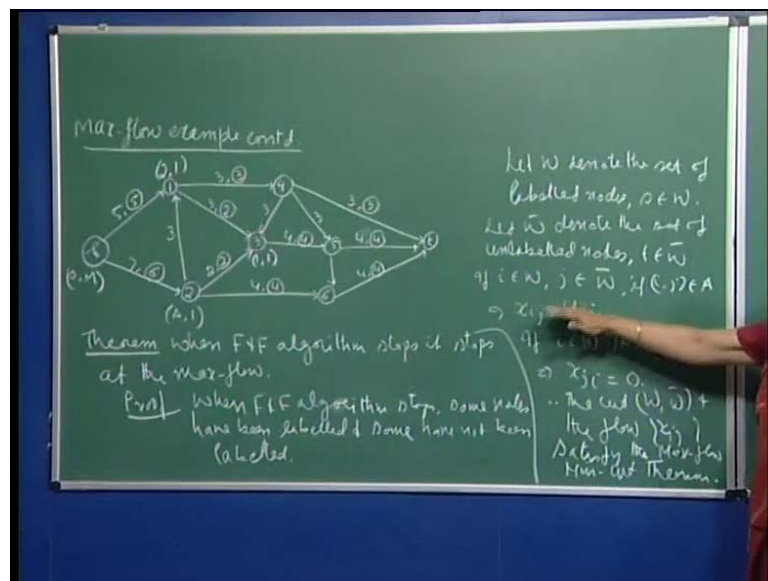 Max-flow example contd
(s,1)
1
3,③
4
5,⑤
3,②
3
3
3,③
3
s
3
4,④
5
4,④
t
(s,M)
7,⑥
2,②
(1,1)
2
4,④
6
4,④
(s,1)
Theorem when F&F algorithm stops it stops
at the max-flow.
Proof when F&F algorithm stops, some nodes
have been labelled & some have not been
labelled.
Let W denote the set of
labelled nodes, s ∈ W.
Let W̄ denote the set of
unlabelled nodes, t ∈ W̄
If i ∈ W, j ∈ W̄, if (i,j) ∈ A
⇒ xij
If
⇒ xji = 0.
∴ The cut (W, W̄) &
the flow (xij)
Satisfy the Max-flow
Min-cut Theorem.